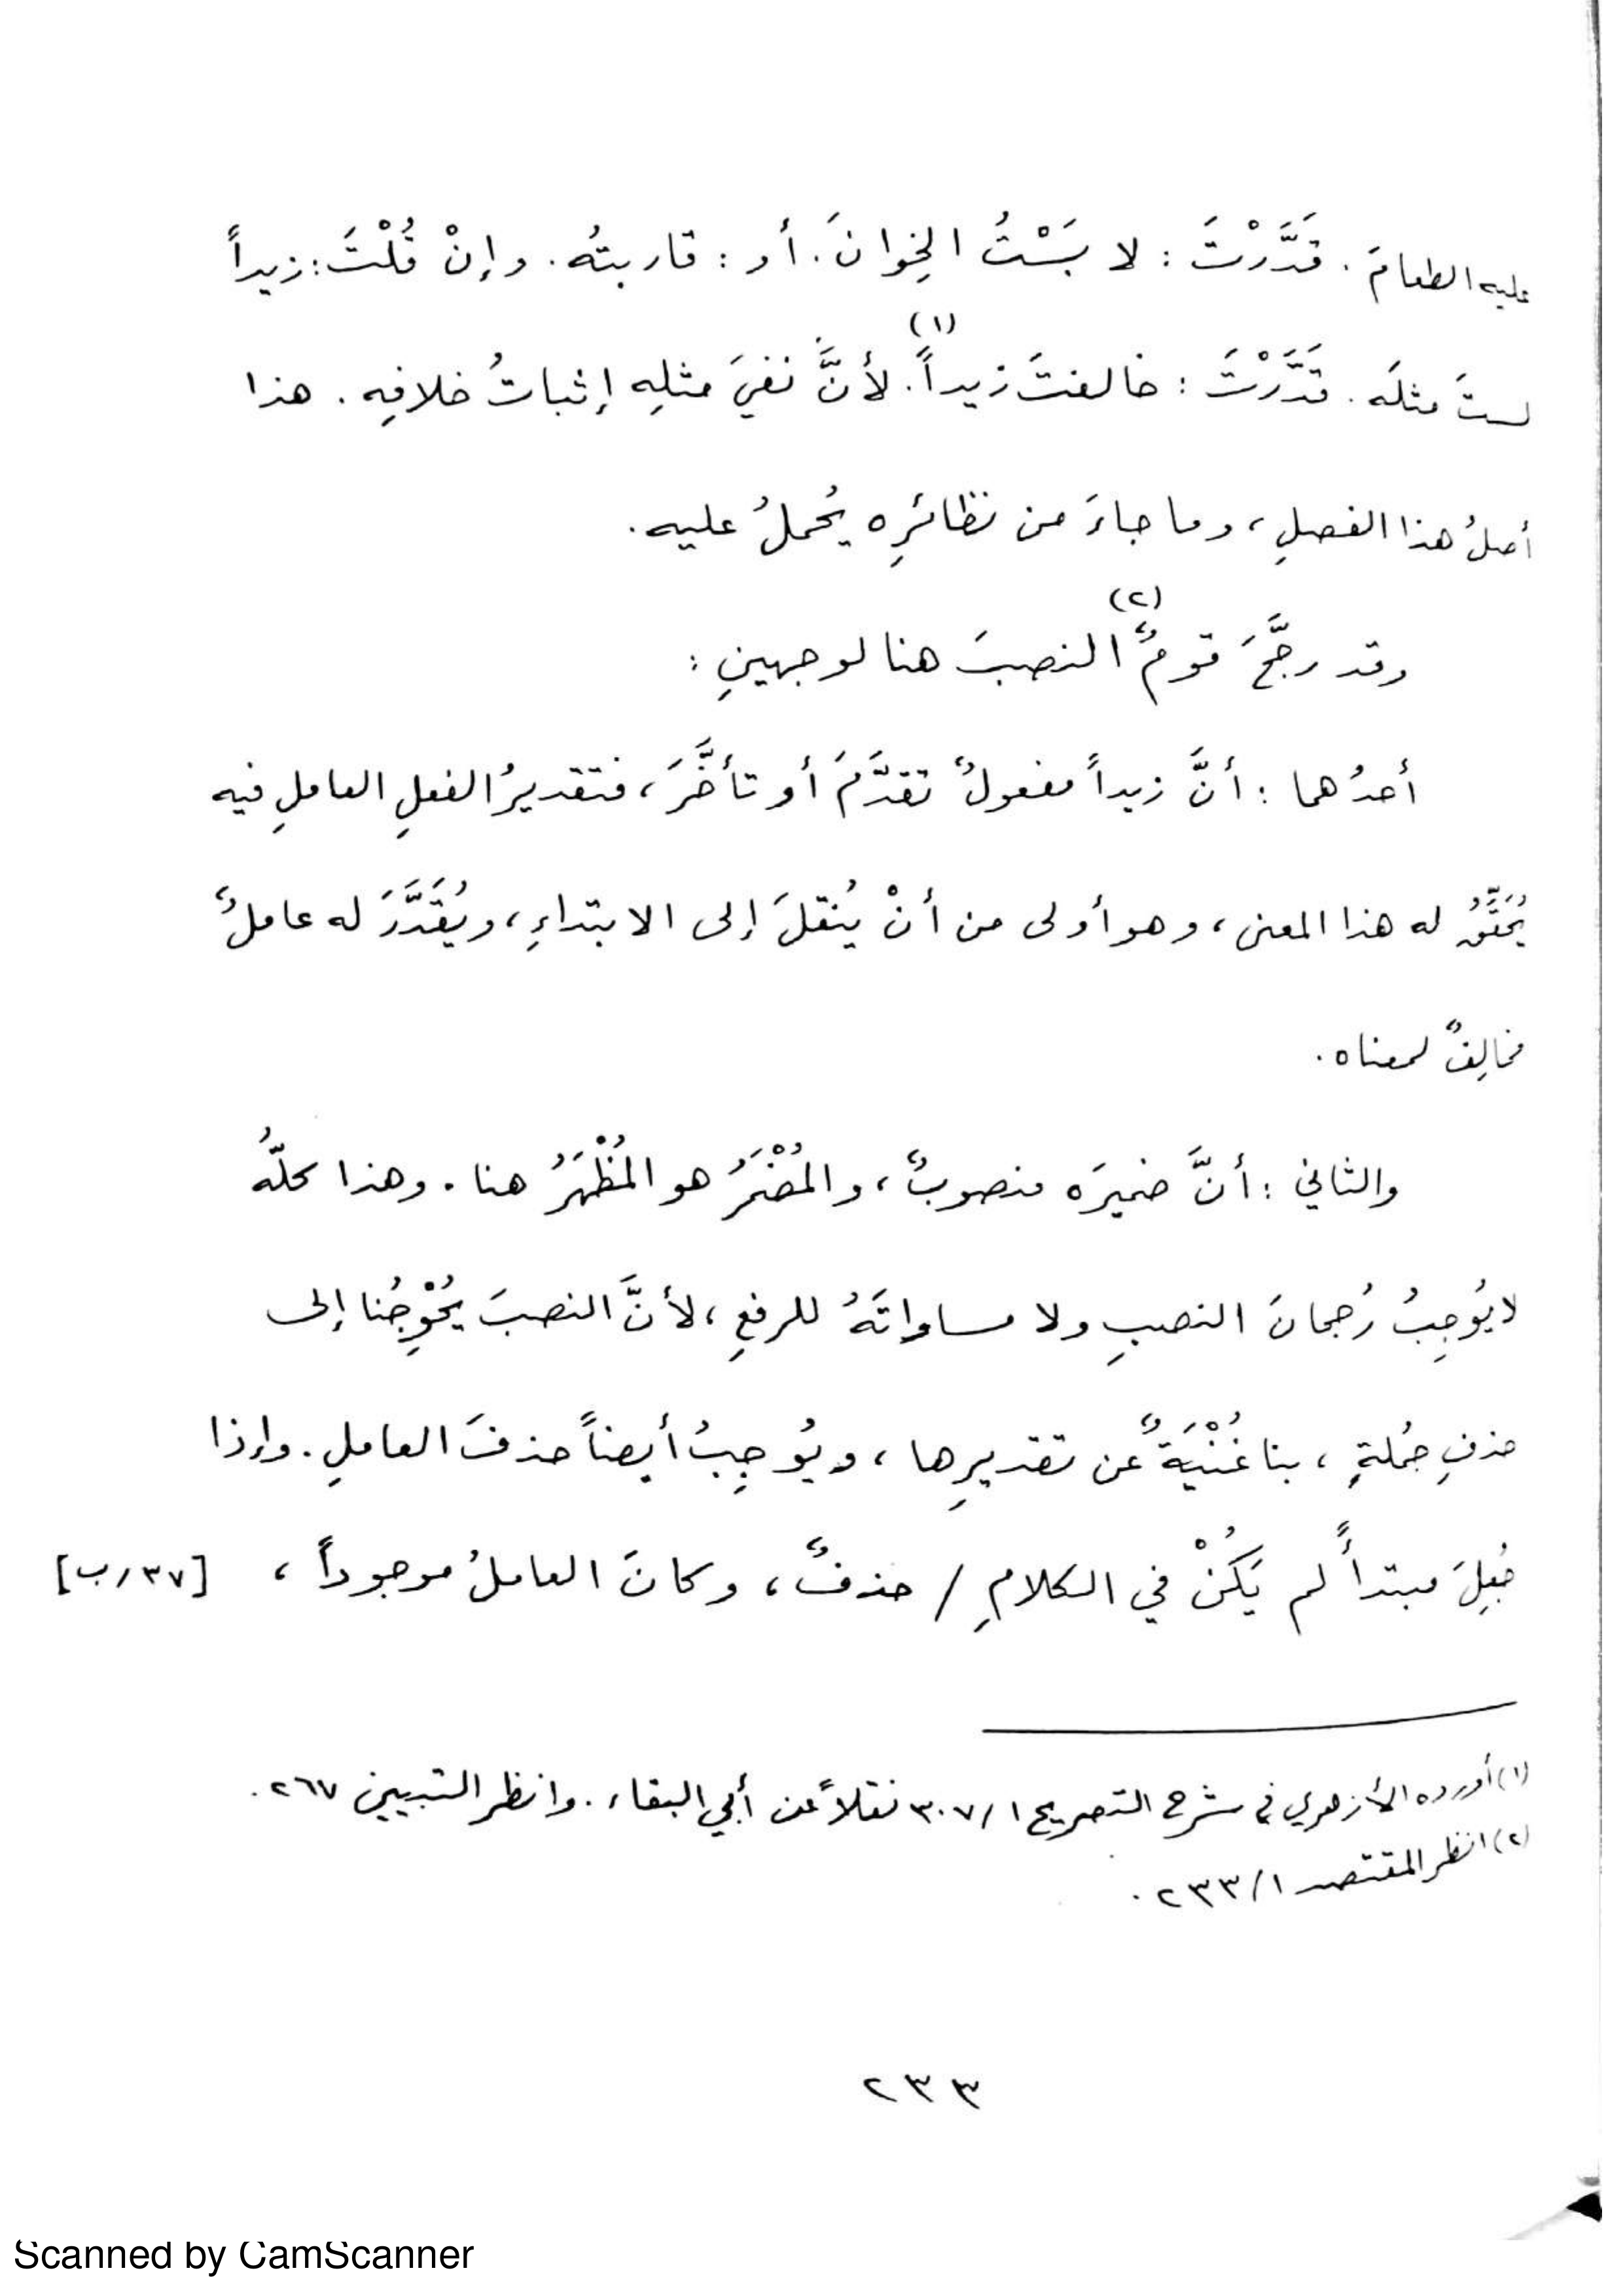 عليه الطعامَ. قَدَّرْتَ: لا بَسْتُ الخِوانَ. أو: قاربتُه. وإنْ قُلْتَ: زيداً
لستَ مثلَه. قَدَّرْتَ: خالفتَ زيداً(١). لأنَّ نفيَ مثلِه إثباتُ خلافِه. هذا
أصلُ هذا الفصلِ، وما جاءَ من نظائرِه يُحملُ عليه.
وقد رجَّحَ قومٌ(٢) النصبَ هنا لوجهينِ:
أحدُهما: أنَّ زيداً مفعولٌ تقدَّمَ أو تأخَّرَ، فتقديرُ الفعلِ العاملِ فيه
يُحَقِّقُ له هذا المعنى، وهو أولى من أنْ يُنقلَ إلى الابتداءِ، ويُقَدَّرَ له عاملٌ
مخالِفٌ لمعناه.
والثاني: أنَّ ضميرَه منصوبٌ، والمُضْمَرُ هو المُظْهَرُ هنا. وهذا كلُّهُ
لا يُوجِبُ رُجحانَ النصبِ ولا مساواتَهُ للرفعِ، لأنَّ النصبَ يُحْوِجُنا إلى
حذفِ جُملةٍ، بنا غُنْيَةٌ عن تقديرِها، ويُوجِبُ أيضاً حذفَ العاملِ. وإذا
جُعِلَ مبتدأً لم يَكُنْ في الكلامِ / حذفٌ، وكانَ العاملُ موجوداً، [٣٧/ب]
(١) أورده الأزهري في شرح التصريح ١/٣٠٧ نقلاً عن أبي البقاء. وانظر التبيين ٢٦٧.
(٢) انظر المقتصد ١/٢٣٣.
٢٣٣
Scanned by CamScanner